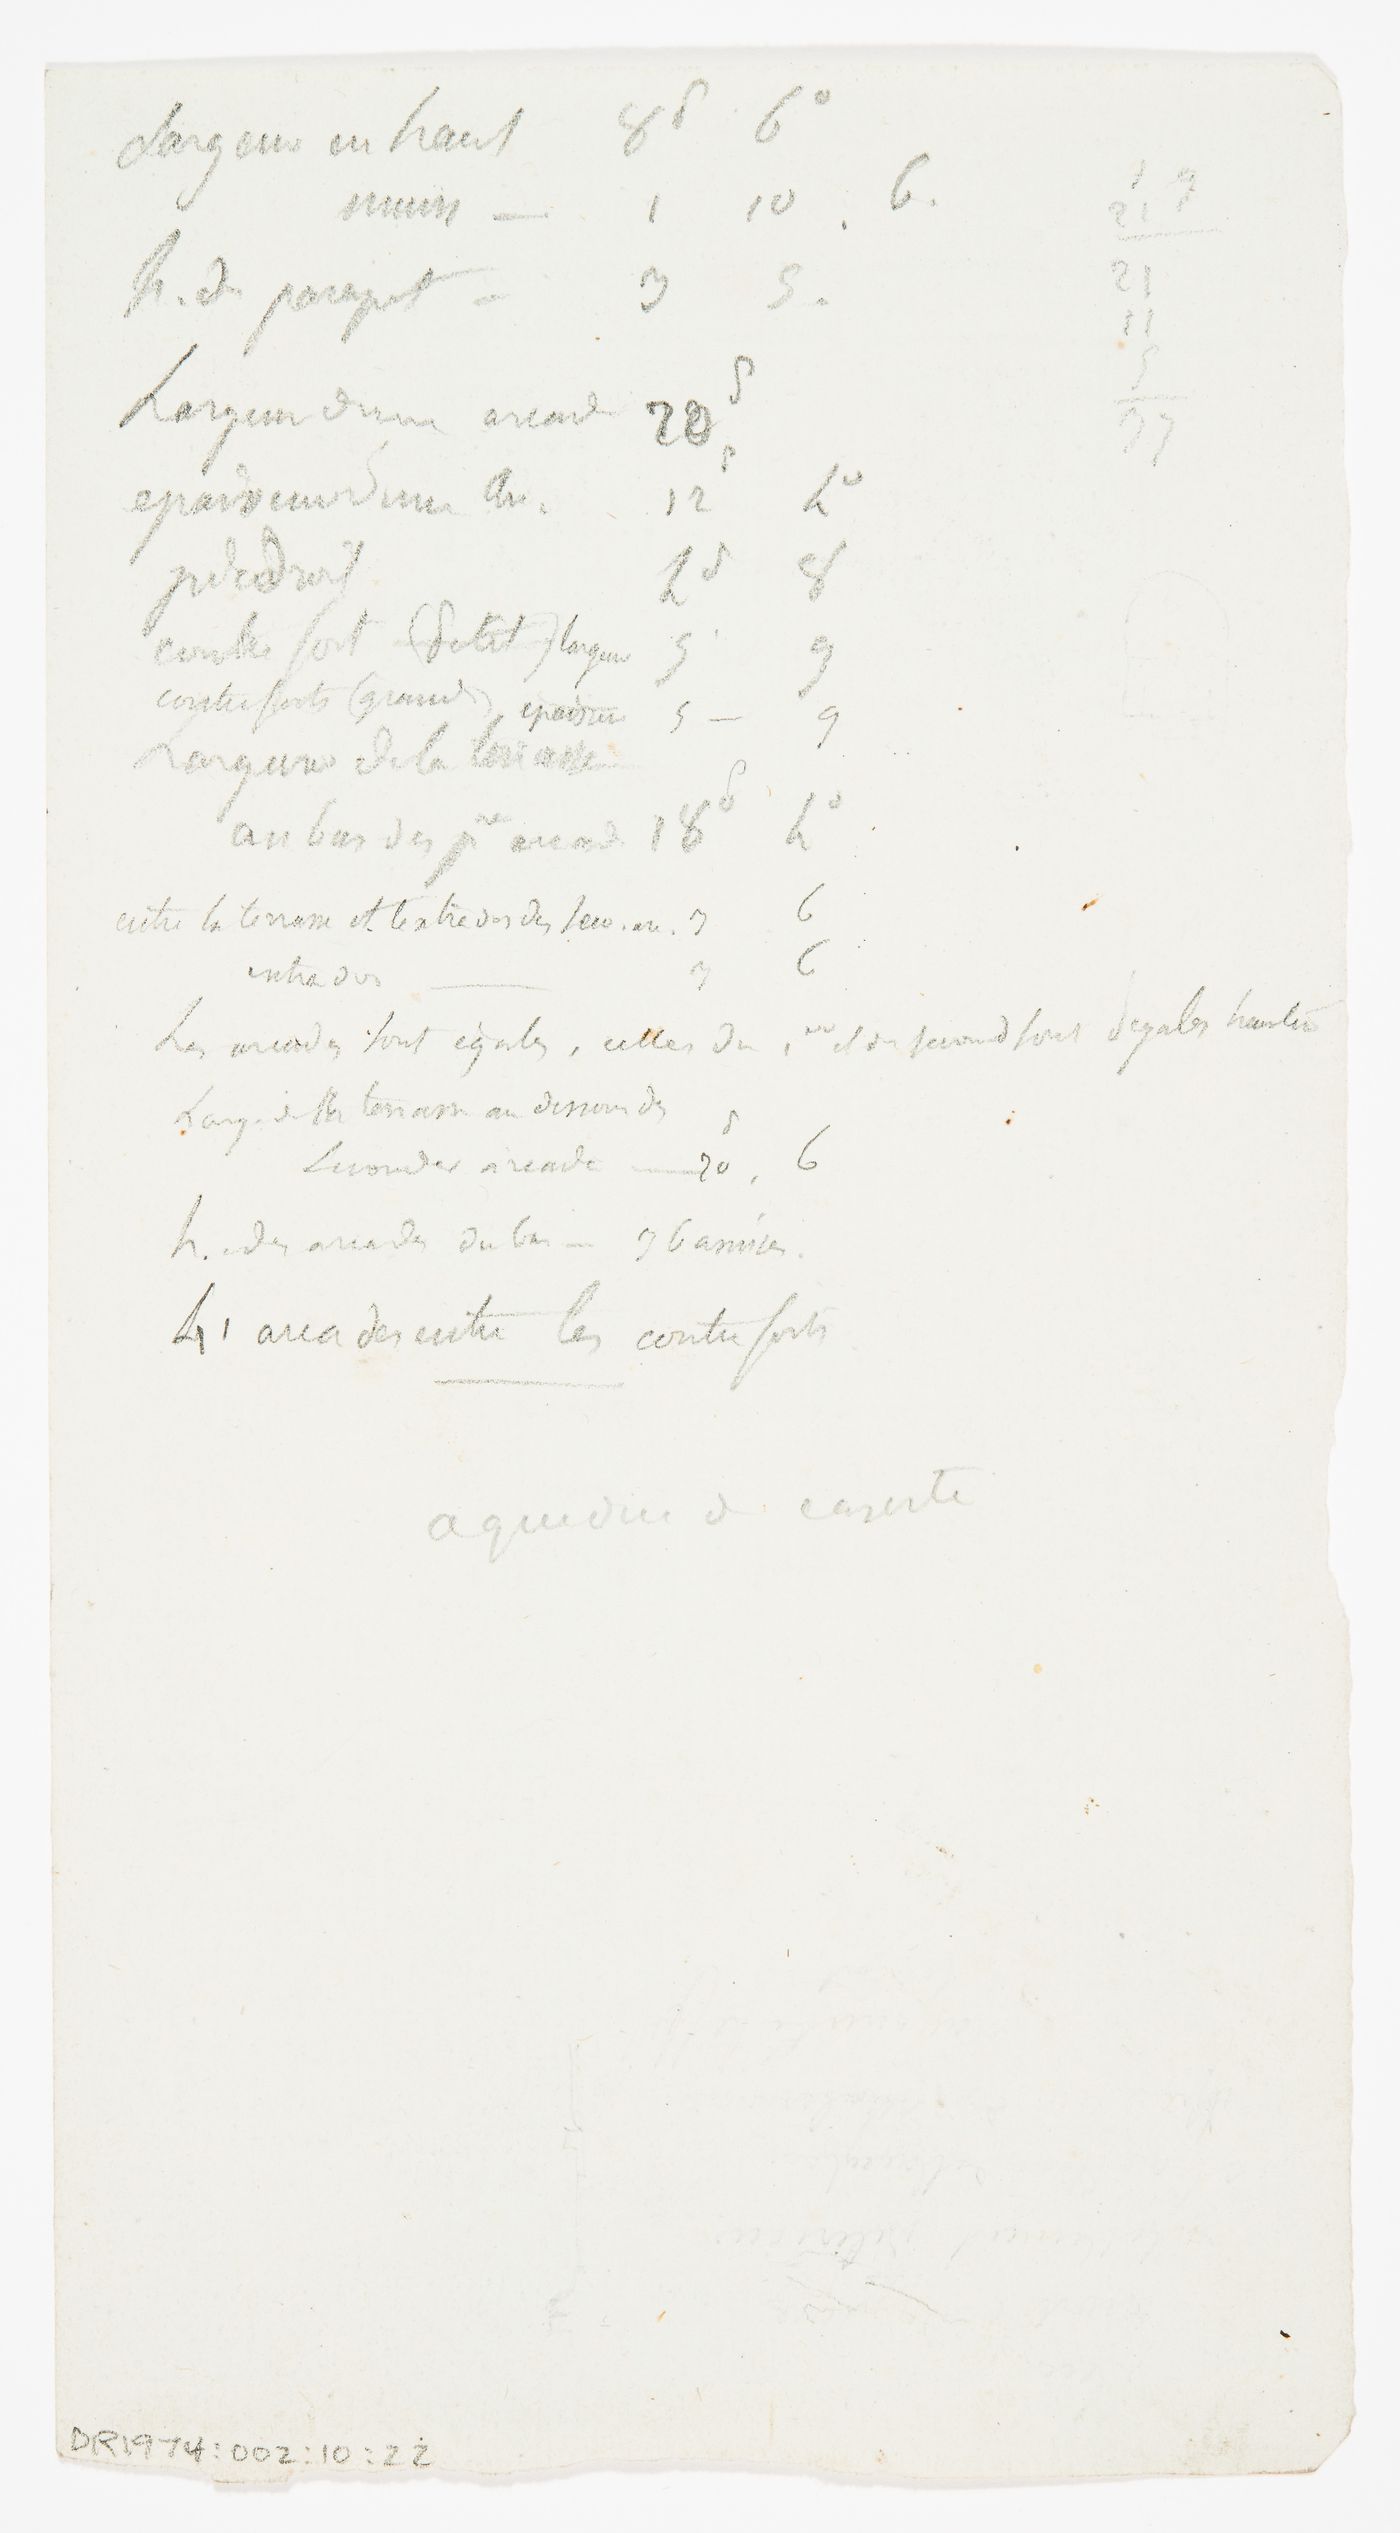 Largeur en haut 8ᵈ 6°
murs — 1 10 . 6.
h. du parapet - 3 5.
Largeur d'une arcade 20ᵈ
epaisseur d'une ar. 12ᵈ 4°
piedroit 4ᵈ 8
contrefort (petit) largeur 5 9
contreforts (grands) epaisseur 5 — 9
Largeur de la terrasse
au bas des pʳᵉˢ arcad 18ᵈ 4°
entre la terrasse et l'extrados des sec. arc. 3 6
intrados — 3 6
Les arcades sont égales, celles du 1ᵉʳ et du second sont d'egales hauteur
Larg. de la terrasse au dessous des
secondes arcades — 20ᵈ, 6
h. des arcades du bas — 36 assises.
41 arcades entre les contreforts
aqueduc de caserte
1 9
21
21
11
5
37
DR1974:002:10:22